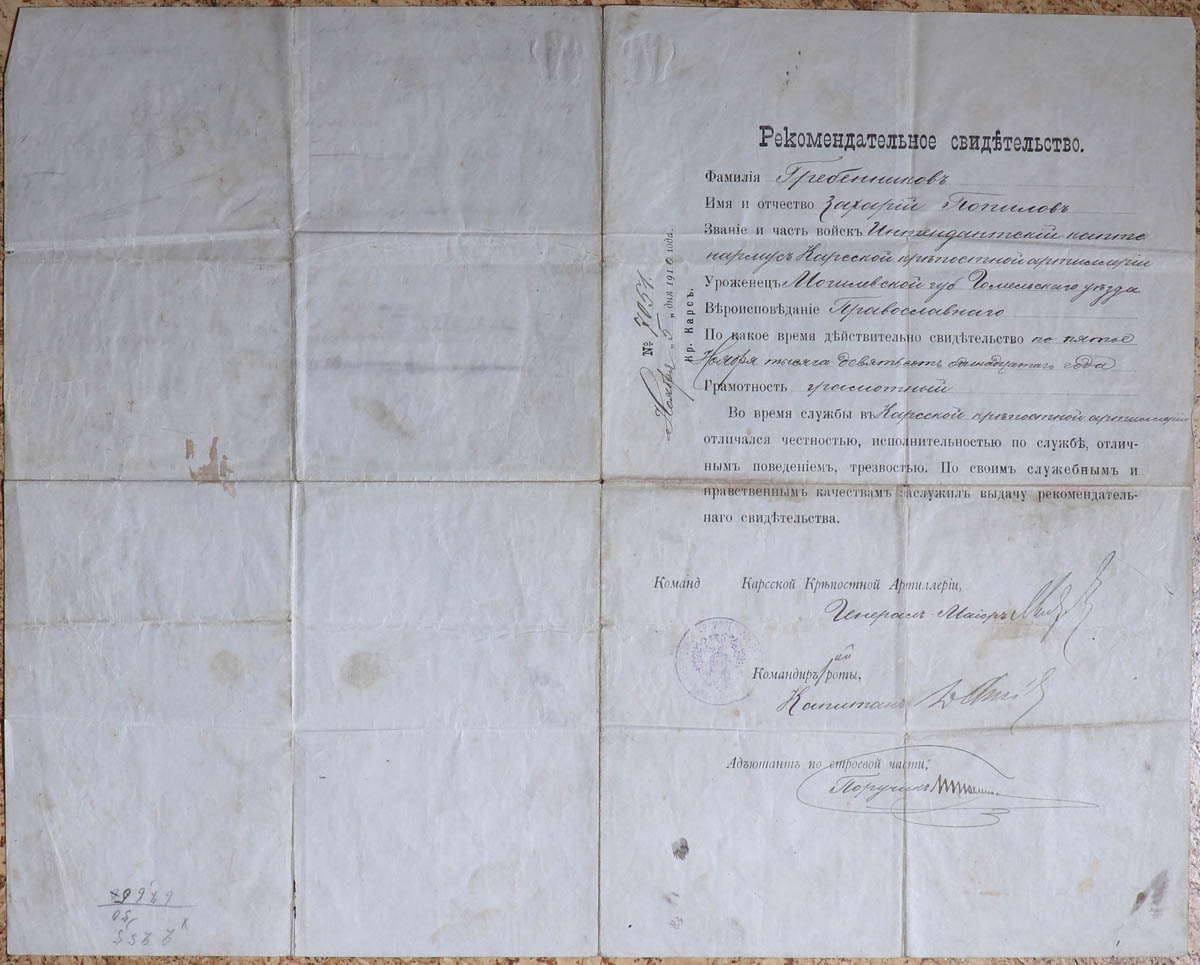 Рекомендательное свидѣтельство.
Фамилія Гребенниковъ
Имя и отчество Захарій Попиловъ
Званіе и часть войскъ Интендантскій капте
нармусъ Карсской крѣпостной артиллеріи
Уроженецъ Могилевской губ Гомельскаго уѣзда
Вѣроисповѣданіе Православнаго
По какое время дѣйствительно свидѣтельство по пятое
Ноября тысяча девятьсотъ одинадцатаго года
Грамотность грамотный
Во время службы въ Карсской крѣпостной артиллеріи
отличался честностью, исполнительностью по службѣ, отлич-
нымъ поведеніемъ, трезвостью. По своимъ служебнымъ и
нравственнымъ качествамъ заслужилъ выдачу рекомендатель-
наго свидѣтельства.
№ 7051.
Ноября „5„ дня 1910 года.
Кр. Карсъ.
Команд Карсской Крѣпостной Артиллеріи,
Генералъ-Маіоръ
Командиръ 1 ой роты,
Капитанъ
Адъютантъ по строевой части,
Поручикъ